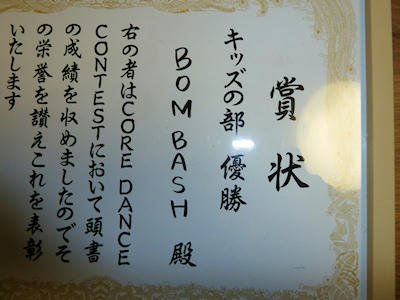 賞状
キッズの部 優勝
BOM BASH 殿
右の者はCORE DANCE
CONTESTにおいて頭書
の成績を収めましたのでそ
の栄誉を讃えこれを表彰
いたします